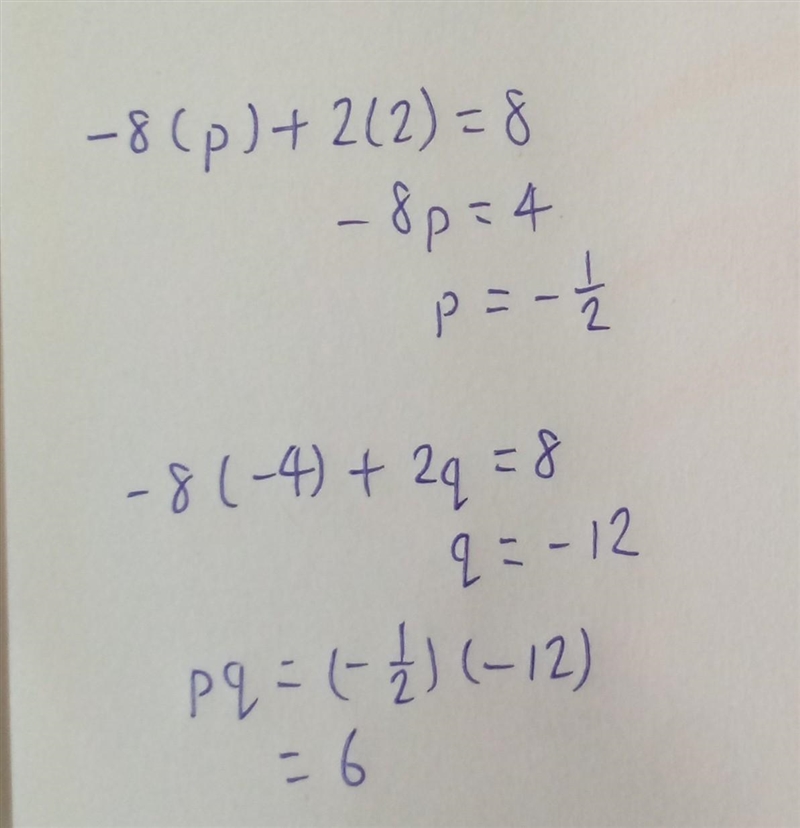 -8(p)+ 2(2) = 8
-8p = 4
p = -1/2
-8(-4) + 2q = 8
q = -12
pq = (-1/2)(-12)
= 6